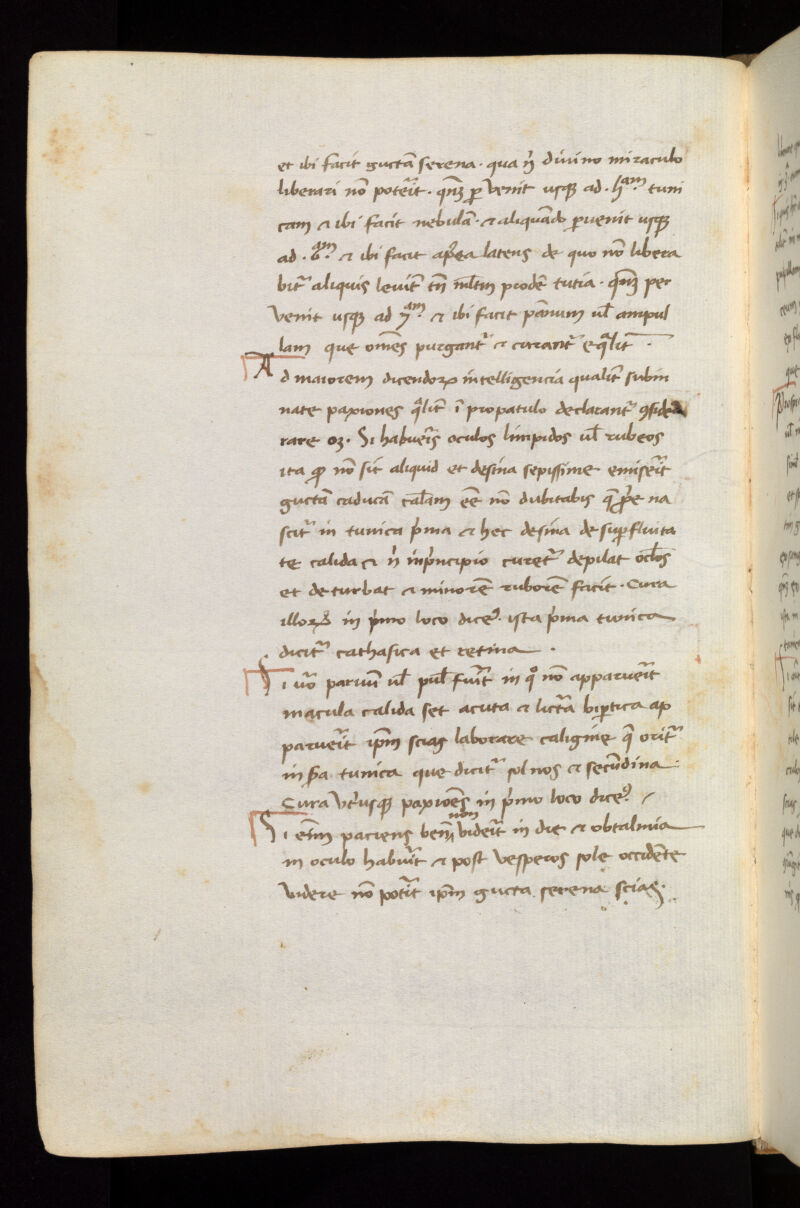 et ibi facit guctā serena · qua nͥ diuino miraculo
liberari nō potērit · qn̄qȝ ꝑ venit usqȝ ad · hᵃᵐ· tuni
cam et ibi facit nebulā · et aliquādo ꝑuenit usqȝ
ad · et ibi facit latens de quo nō libera
bit᷑ aliquis leuit̄ tn̄ ml̄tm prodēt tutia · qn̄qȝ per
venit usqȝ ad yᵃᵐ· et ibi facit pānum ul̄ ampul
lam que om̄es purgant᷑ et curant᷑ eq̄lit̄ ·
Ad maiorem dicendoꝝ intelligencia qualit̄ subin
nate paxiones q̄lit̄ ī propatulo declarant᷑ ꝯside
rare oȝ · Si habueris oculos limpidos ul̄ rubeos
ita ꝙ nō sit aliquid et desina sepissime emiserit
guctā caducā cal̄am eē nō dubitabis na
scit᷑ in tunica pͥma et hec desina de suꝑfluita
te calida et nͥ inpͥncipio curet᷑ depilat ocl̄os
et deturbat et minorē ruborē facit · Cura
illoꝝ in pͥmo loco dicet᷑ · ista pͥma tunica
dicit᷑ cathafica et retina ·
Si uͦ paruū ul̄ fuit in qͦ nō apparuerit
macula calida set acuta et ap
paruerit ip̄m scias laborare caligine q̄ orit᷑
in tunica que dicit᷑ sol nos et secūdina :
Cura vtͥusqȝ paxiōes in pͥmo loco dicet᷑ ·
Si eīm paciens bene non viderit in die et obtalmia
in oculo habuit et post vesperos sole occidēte
videre nō potit ip̄m gucta serena scias ·